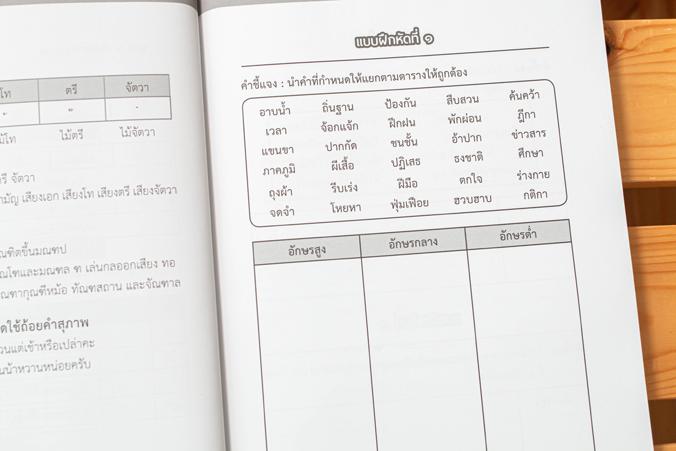 โท ตรี จัตวา
ไม้ตรี ไม้จัตวา
รี จัตวา
เสียงเอก เสียงโท เสียงตรี เสียงจัตวา
ณฑิตขึ้นมณฑป
เล่นกลออกเสียง ทอ
ทัณฑสถาน และจัณฑาล
ดใช้ถ้อยคำสุภาพ
วนแต่เช้าหรือเปล่าคะ
น้ำหวานหน่อยครับ
แบบฝึกหัดที่ ๑
คำชี้แจง : นำคำที่กำหนดให้แยกตามตารางให้ถูกต้อง
อาบน้ำ ถิ่นฐาน ป้องกัน สืบสวน ค้นคว้า
เวลา จ้อกแจ้ก ฝึกฝน พักผ่อน ฎีกา
แขนขา ปากกัด ชนชั้น อ้าปาก ข่าวสาร
ภาคภูมิ ผีเสื้อ ปฏิเสธ ธงชาติ ศึกษา
ถุงผ้า รีบเร่ง ฝีมือ ตกใจ ร่างกาย
จดจำ โหยหา ฟุ่มเฟือย ฮวบฮาบ กติกา
อักษรสูง อักษรกลาง อักษรต่ำ